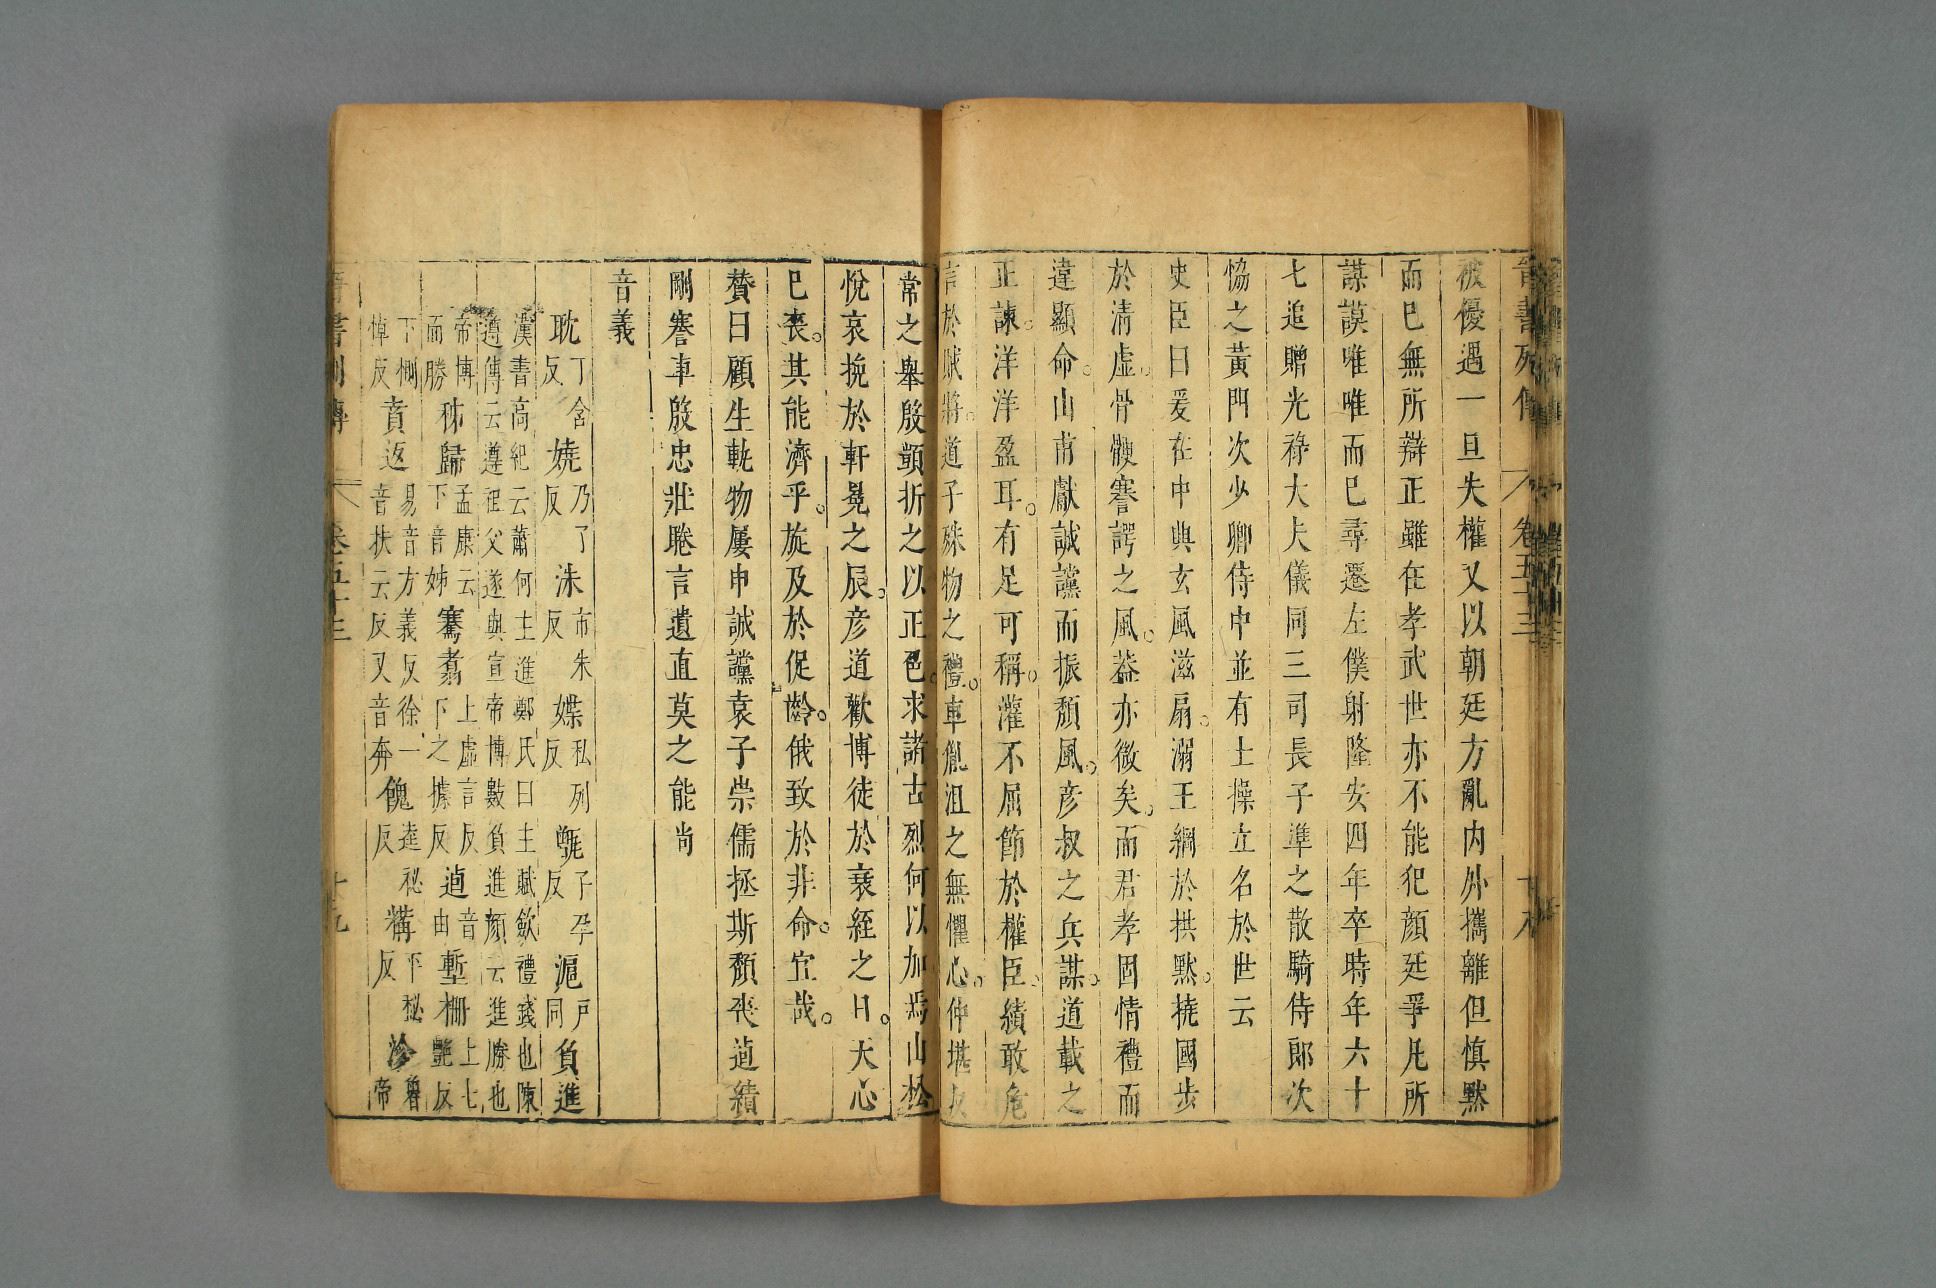 晉書列傳 卷五十三
被優遇一旦失權又以朝廷方亂內外攜離但慎黙
而巳無所辯正雖在孝武世亦不能犯顏廷爭凡所
謀謨唯唯而巳尋遷左僕射隆安四年卒時年六十
七追贈光祿大夫儀同三司長子準之散騎侍郎次
恊之黃門次少卿侍中並有士操立名於世云
史臣曰爰在中興玄風滋扇。溺王綱於拱黙。撓國步
於清虛。骨骾謇諤之風。葢亦微矣。而君孝固情禮而
違顯命。山甫獻誠讜而振頹風。彥叔之兵謀。道載之
正諫。洋洋盈耳。有足可稱。灌不屈節於權臣。績敢危
言於賊將。道子殊物之禮。車胤沮之無懼心。仲堪反
常之舉殷顗折之以正色。求諸古烈何以加焉山松
悅哀挽於軒冕之辰。彥道歡博徒於衰絰之日。天心
巳喪。其能濟乎。旋及於促齡。俄致於非命。宜哉。
贊曰顧生軌物屢申誠讜袁子崇儒拯斯頹喪逌績
剛謇車殷忠壯睠言遺直莫之能尚
音義
耽丁含反 嬈乃了反 洙市朱反 媟私列反 毻子孕反 滬戶同 負進
漢書高紀云蕭何主進鄭氏曰主賦斂禮錢也陳
遵傳云遵祖父遂與宣帝博數負進顏云進勝也
帝博而勝 秭歸孟康云下音姊 騫翥上虛言反下之據反 逌音由 塹柵上七艷反
下惻 悼反 賁返易音方義反徐一音扶云反又音奔 餽逵祕反 糒平祕反 沴魯帝
晉書列傳 卷五十三 十九